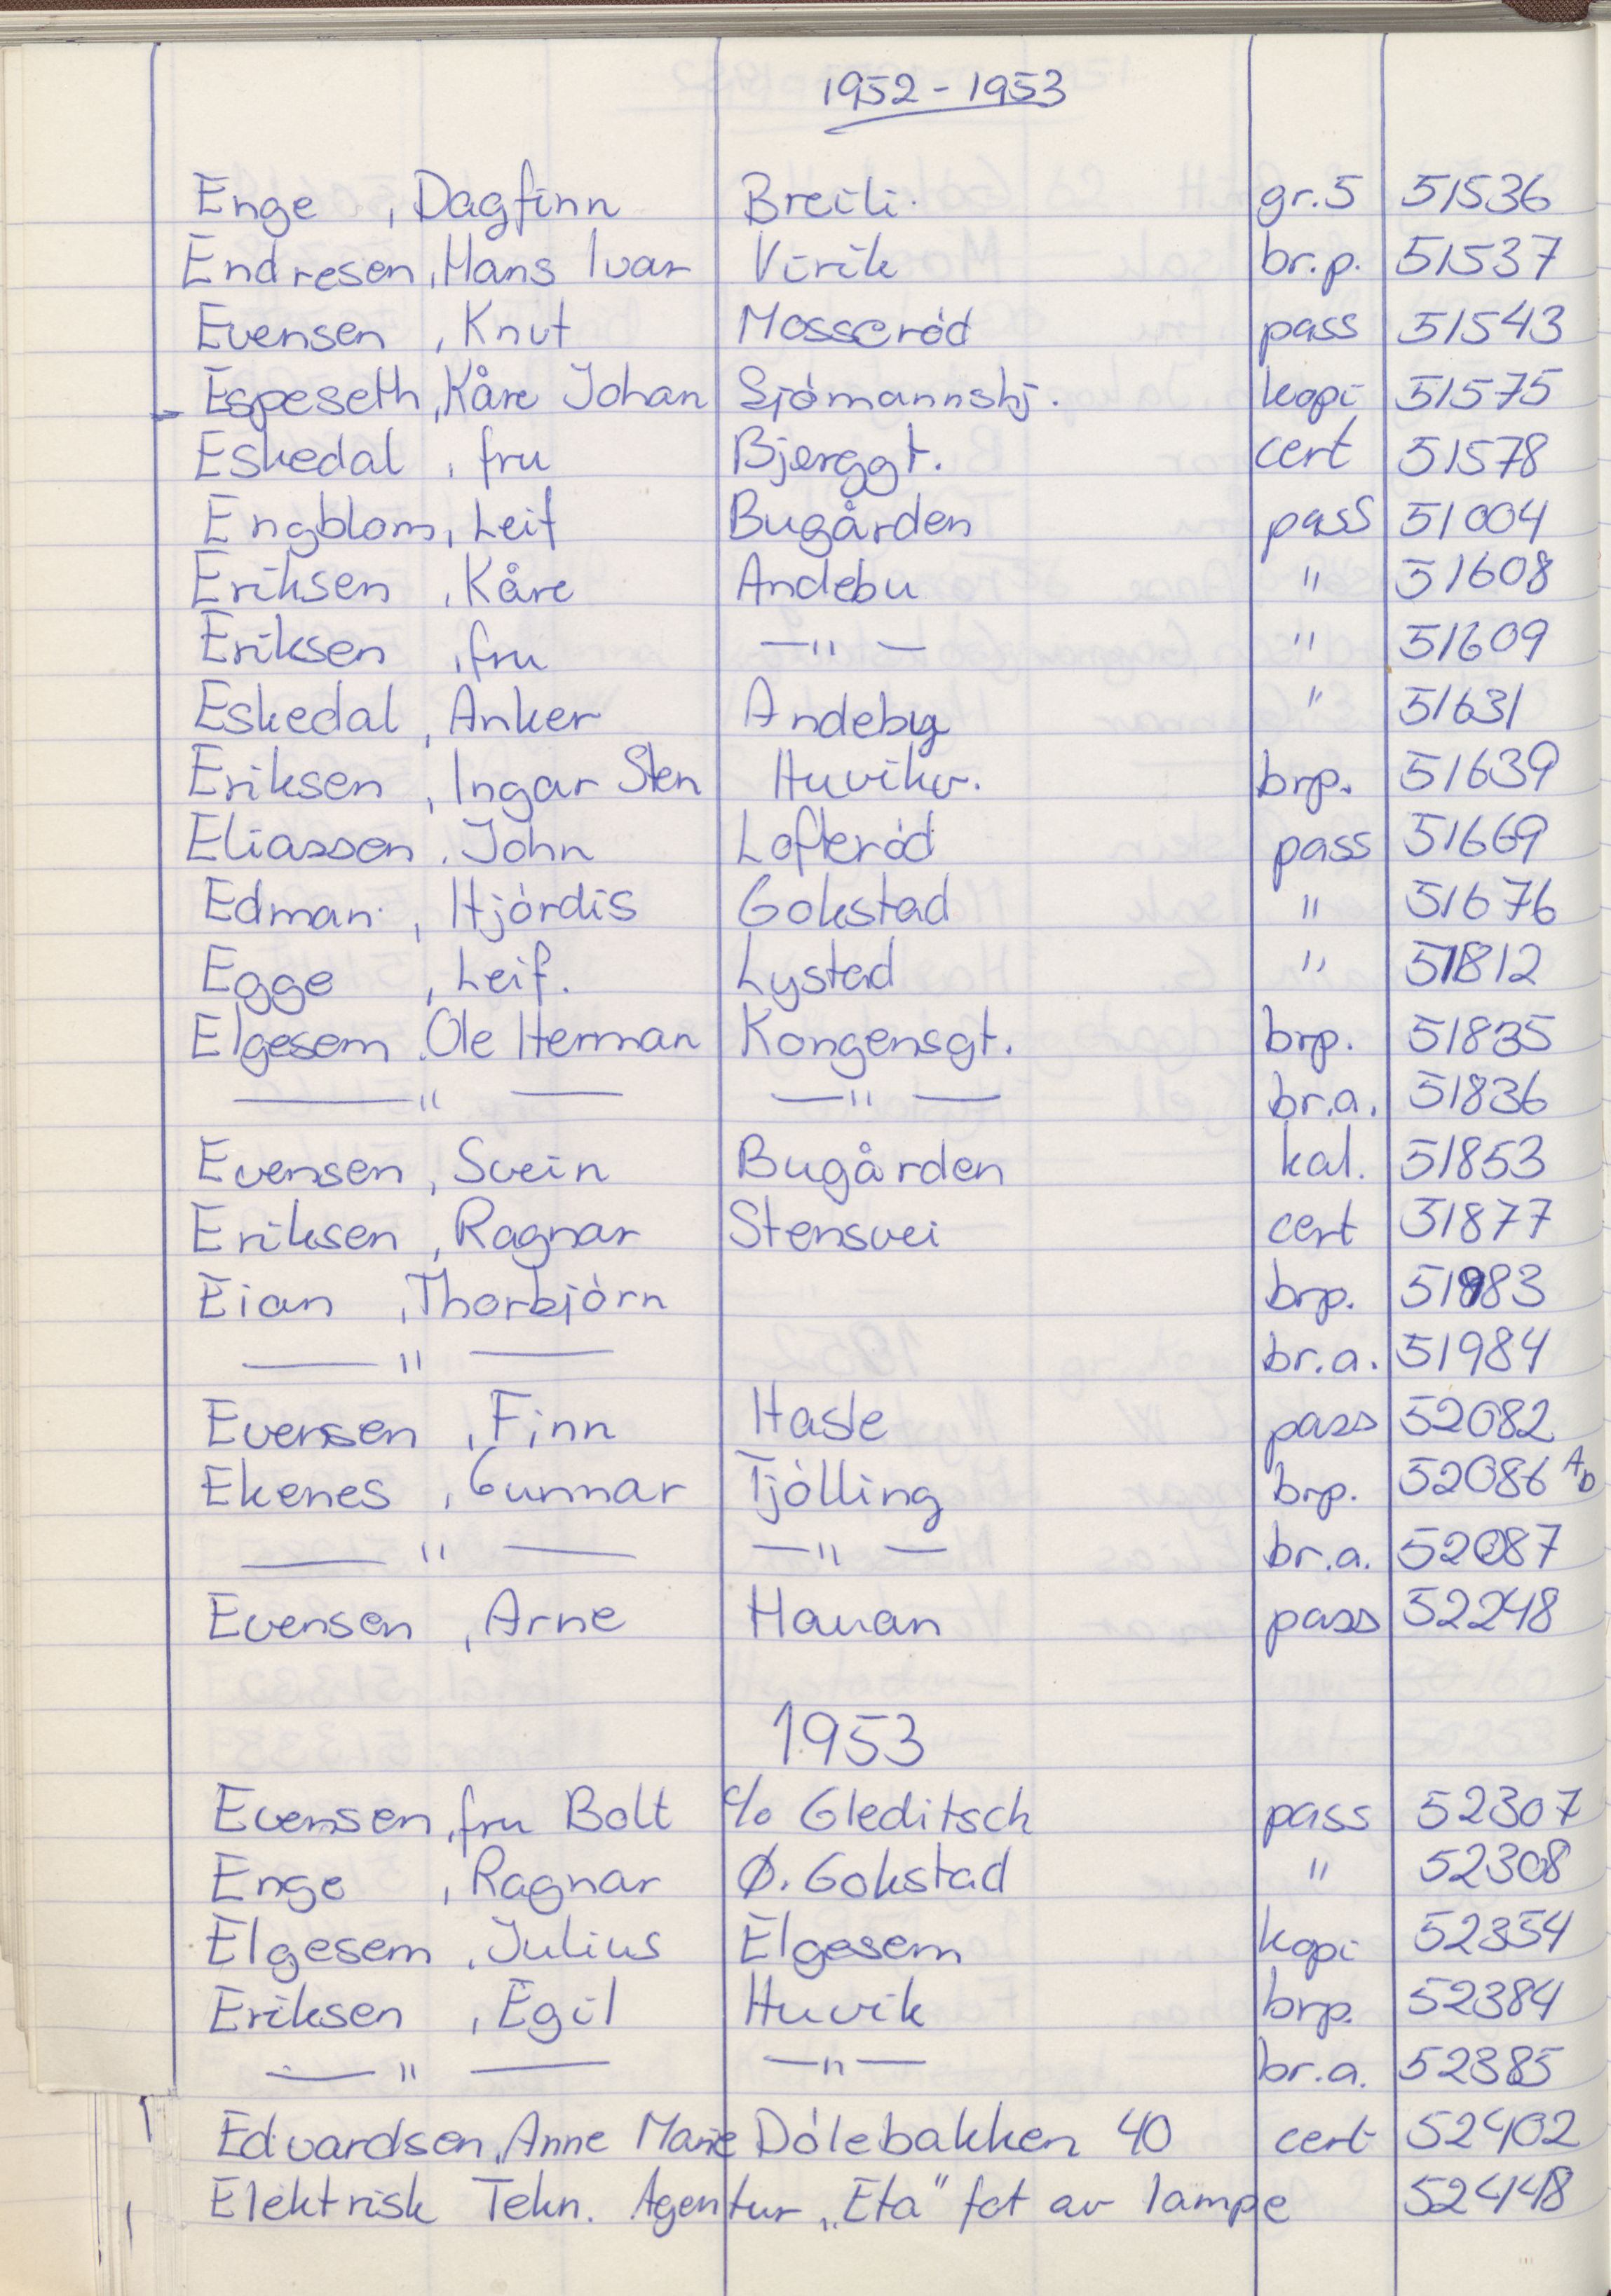 1952 - 1953
Enge , Dagfinn Breili gr.5 51536
Endresen, Hans Ivar Virik br.p. 51537
Evensen , Knut Mosserød pass 51543
Espeseth, Kåre Johan Sjømannshj. kopi 51575
Eskedal , fru Bjerggt. cert 51578
Engblom, Leif Bugården pass 51004
Eriksen , Kåre Andebu " 51608
Eriksen , fru —"— " 51609
Eskedal , Anker Andebu " 51631
Eriksen , Ingar Sten Huvikv. brp. 51639
Eliasson , John Lofterød pass 51669
Edman , Hjørdis Gokstad " 51676
Egge , Leif. Lystad " 51812
Elgesem , Ole Herman Kongensgt. brp. 51835
—"— —"— br.a. 51836
Evensen , Svein Bugården kal. 51853
Eriksen , Ragnar Stensvei cert 51877
Eian , Thorbjørn brp. 51983
—"— br.a. 51984
Evensen , Finn Hasle pass 52082
Ekenes , Gunnar Tjølling brp. 52086 A,b
—"— —"— br.a. 52087
Evensen , Arne Hauan pass 52248
1953
Evensen, fru Bolt c/o Gleditsch pass 52307
Enge , Ragnar Ø. Gokstad " 52308
Elgesem , Julius Elgesem kopi 52354
Eriksen , Egil Huvik brp. 52384
—"— —"— br.a. 52385
Edvardsen, Anne Marie Dølebakken 40 cert 52402
Elektrisk Tekn. Agentur „Eta" fot av lampe 52448